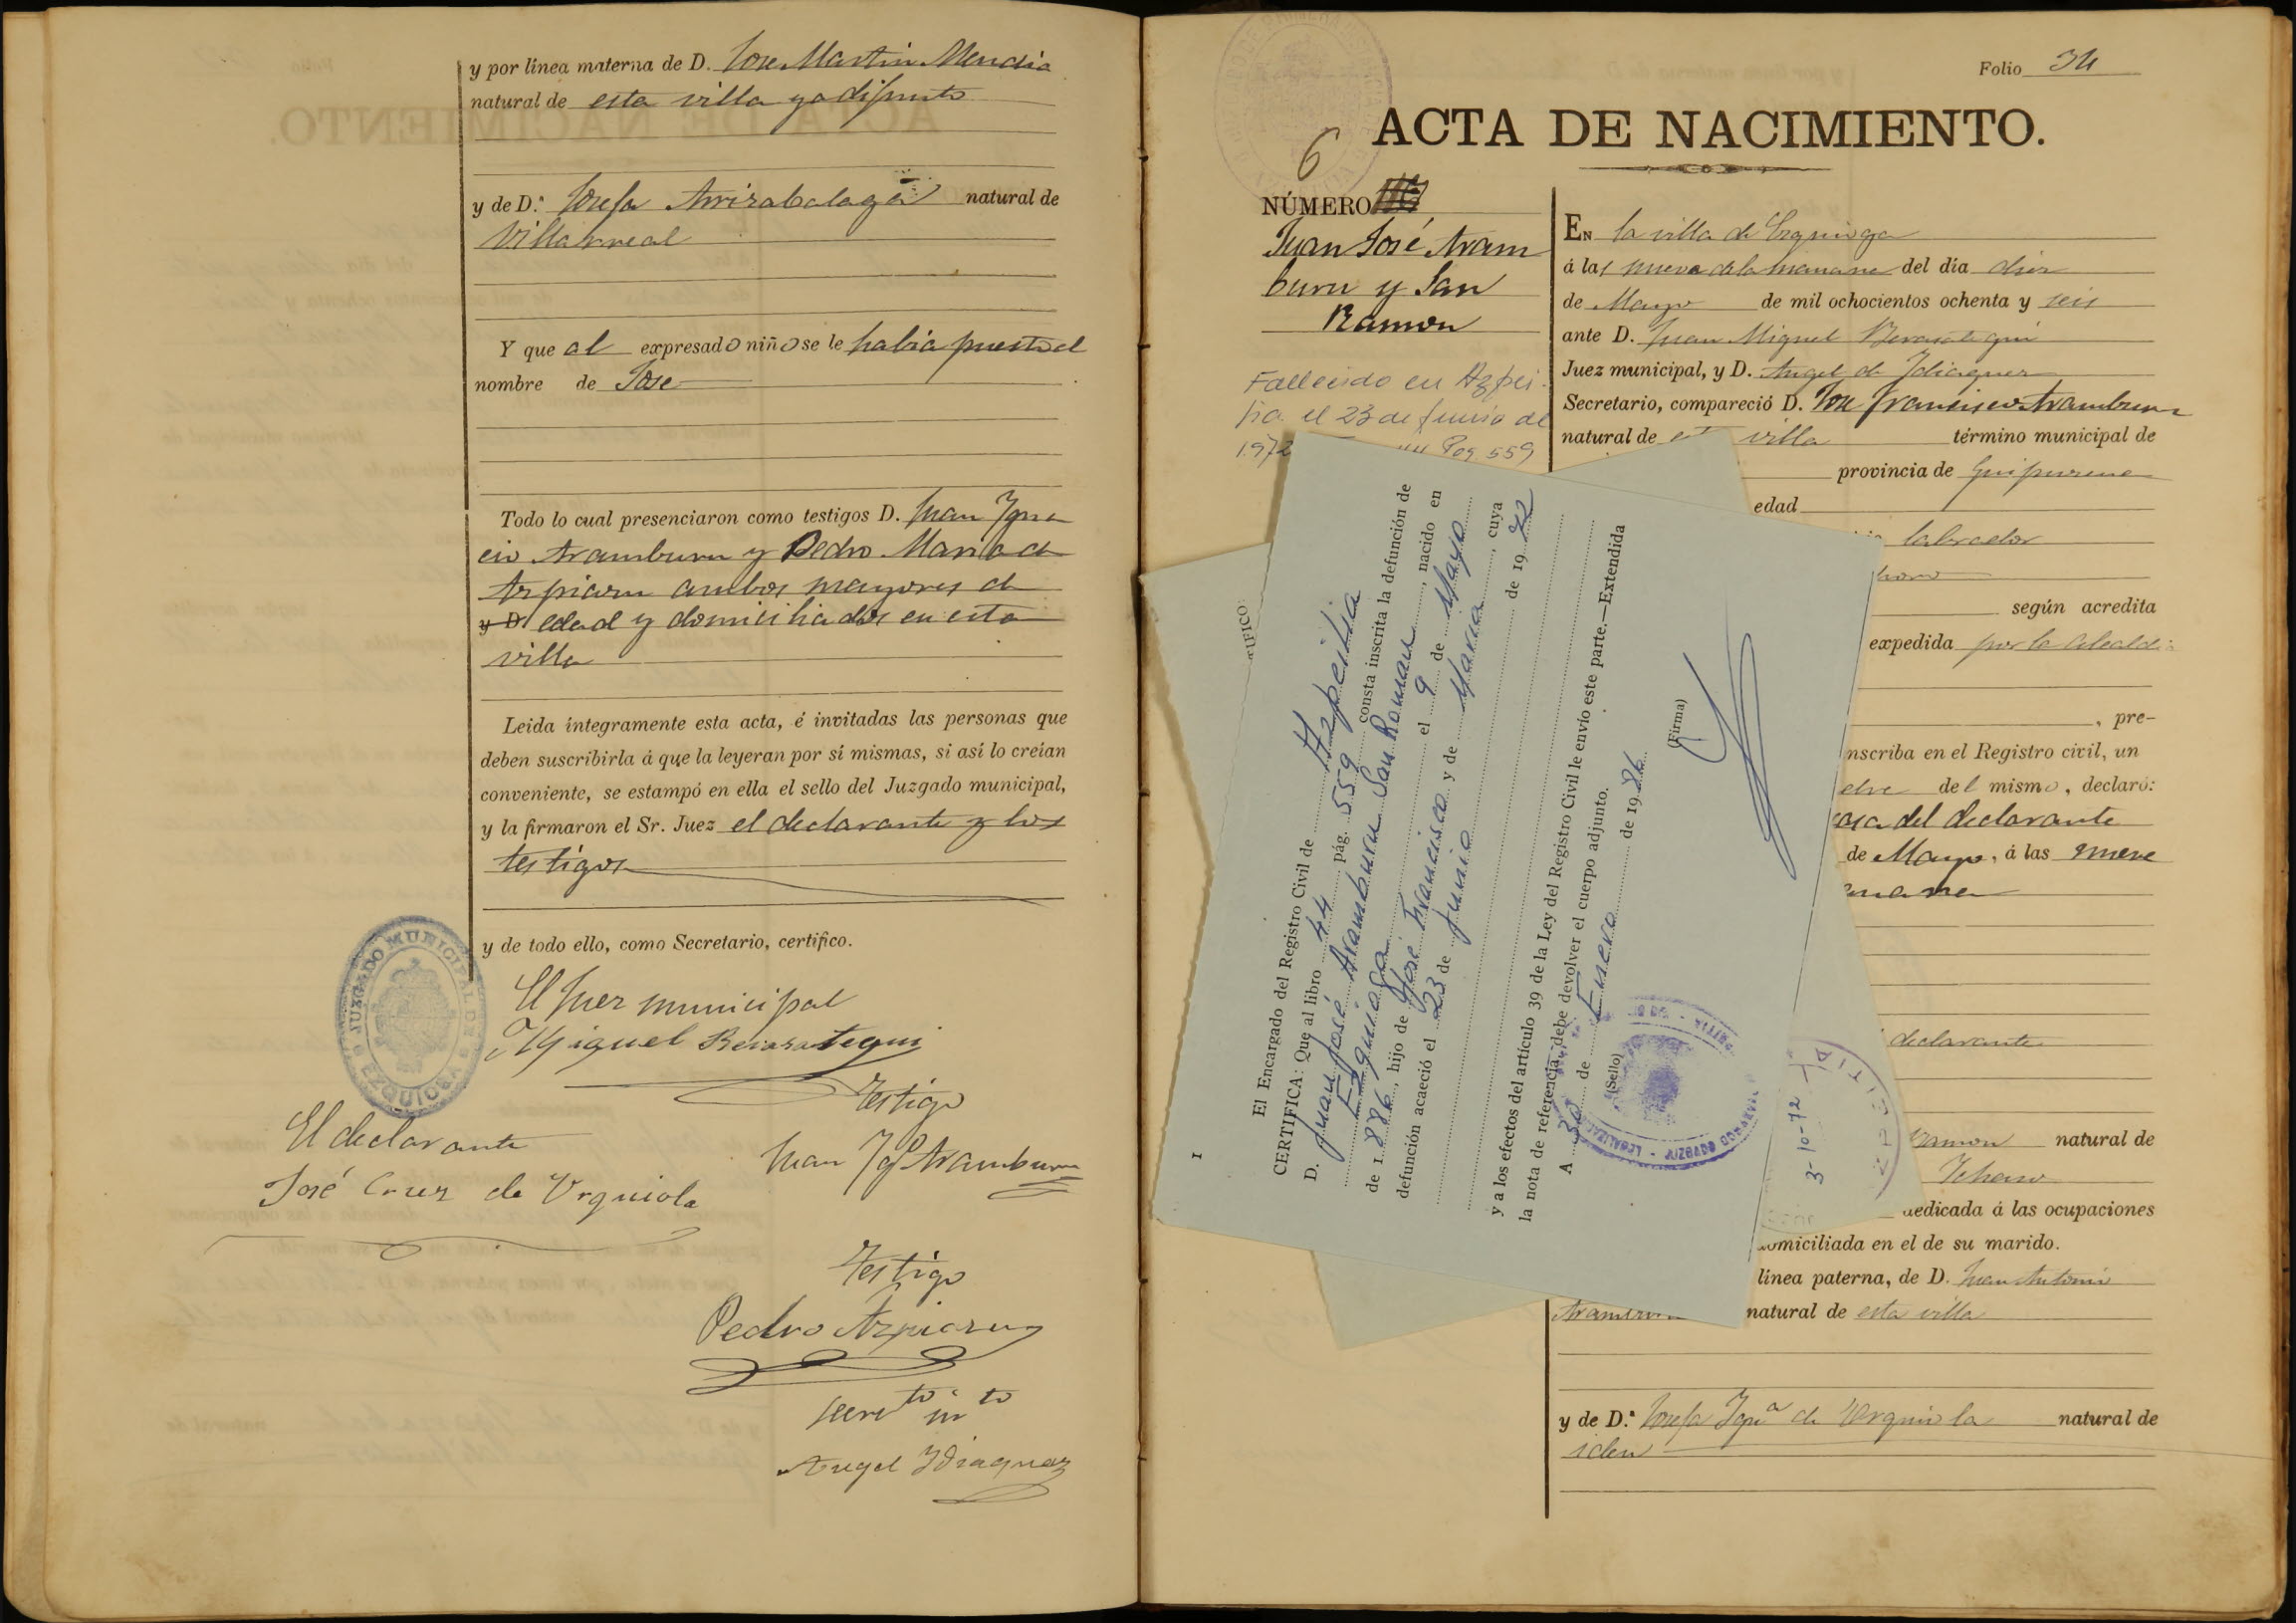 y por línea materna de D. Jose Martin Mendia
natural de esta villa ya difunto
y de D.ª Josefa Arrizabalaga natural de
Villarreal
Y que al expresado niño se le habia puesto el
nombre de Jose
Todo lo cual presenciaron como testigos D. Juan Igna
cio Aramburu y Pedro Maria de
Azpiazu ambos mayores de
y D. edad y domiciliados en esta
villa
Leida íntegramente esta acta, é invitadas las personas que
deben suscribirla á que la leyeran por sí mismas, si así lo creían
conveniente, se estampó en ella el sello del Juzgado municipal,
y la firmaron el Sr. Juez el declarante y los
testigos
y de todo ello, como Secretario, certifico.
JUZGADO MUNICIPAL DE EZQUIOGA
El Juez municipal
Miguel Berasategui
Testigo
El declarante
Juan Ig.º Aramburu
José Cruz de Urquiola
Testigo
Pedro Azpiazu
Angel Idiaquez
Folio 34
ACTA DE NACIMIENTO.
6
NÚMERO
Juan José Aram
buru y San
Ramon
Fallecido en Azpei-
tia el 23 de Junio de
1972 Pag. 559
EN la villa de Ezquioga
á las nueve de la manana del día diez
de Mayo de mil ochocientos ochenta y seis
ante D. Juan Miguel Berasategui
Juez municipal, y D. Angel de Idiaquez
Secretario, compareció D. Jose Francisco Aramburu
natural de villa término municipal de
provincia de Guipuzcoa
edad
labrador
según acredita
expedida por la Alcaldia
, pre-
nscriba en el Registro civil, un
del mismo, declaró:
casa del declarante
de Mayo, á las nueve
declarante
Ramon natural de
Ichaso
dedicada á las ocupaciones
domiciliada en el de su marido.
línea paterna, de D. Juan Antonio
Aramburu natural de esta villa
y de D.ª Josefa Ign.ª de Urquiola natural de
idem
El Encargado del Registro Civil de Azpeitia
CERTIFICA: Que al libro 44 pág. 559 consta inscrita la defunción de
D. Juan José Aramburu San Roman, nacido en
Ezquioga el 9 de Mayo
de 1.886, hijo de José Francisco y de Maria, cuya
defunción acaeció el 23 de Junio de 19 72
y a los efectos del artículo 39 de la Ley del Registro Civil le envío este parte.—Extendida
la nota de referencia, debe devolver el cuerpo adjunto.
A 30 de Enero de 19 86
(Sello)
(Firma)
3-10-72
1